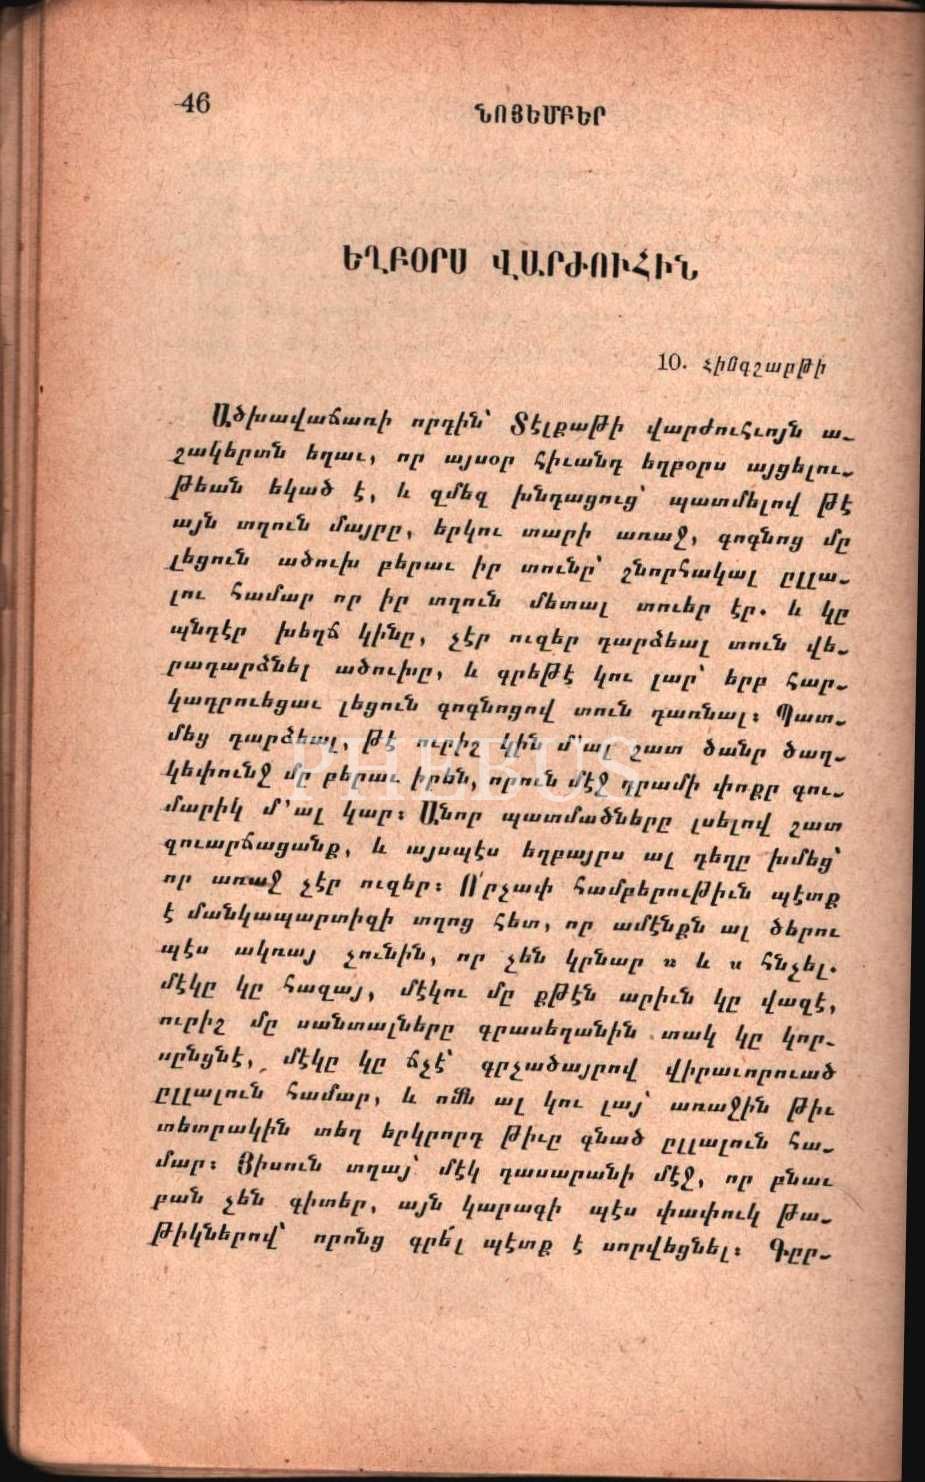 46
ՆՈՅԵՄԲԵՐ
ԵՂԲՕՐՍ ՎԱՐԺՈՒՀԻՆ
10. Հինգշաբթի
Ածխավաճառի որդին՝ Տէլքաթի վարժուհւոյն ա-
շակերտն եղաւ, որ այսօր հիւանդ եղբօրս այցելու-
թեան եկած է, և զմեզ խնդացուց՝ պատմելով թէ
այն տղուն մայրը, երկու տարի առաջ, գոգնոց մը
լեցուն ածուխ բերաւ իր տունը՝ շնորհակալ ըլլա-
լու համար որ իր տղուն մետալ տուեր էր. և կը
պնդէր խեղճ կինը, չէր ուզեր դարձեալ տուն վե-
րադարձնել ածուխը, և գրեթէ կու լար՝ երբ հար-
կադրուեցաւ լեցուն գոգնոցով տուն դառնալ։ Պատ-
մեց դարձեալ, թէ ուրիշ կին մ՚ալ շատ ծանր ծաղ-
կեփունջ մը բերաւ իրեն, որուն մէջ դրամի փոքր գու-
մարիկ մ՚ալ կար։ Անոր պատմածները լսելով շատ
զուարճացանք, և այսպէս եղբայրս ալ դեղը խմեց՝
որ առաջ չէր ուզեր։ Ո՛րչափ համբերութիւն պէտք
է մանկապարտիզի տղոց հետ, որ ամէնքն ալ ծերու
պէս ակռայ չունին, որ չեն կրնար ռ և ս հնչել.
մէկը կը հազայ, մէկու մը քթէն արիւն կը վազէ,
ուրիշ մը սանտալները գրասեղանին տակ կը կոր-
սընցնէ, մէկը կը ճչէ՝ գրչածայրով վիրաւորուած
ըլլալուն համար, և ոմն ալ կու լայ՝ առաջին թիւ
տետրակին տեղ երկրորդ թիւը գնած ըլլալուն հա-
մար։ Յիսուն տղայ՝ մէկ դասարանի մէջ, որ բնաւ
բան չեն գիտեր, այն կարագի պէս փափուկ թա-
թիկներով՝ որոնց գրել պէտք է սորվեցնել։ Գըր-
PHEBUS